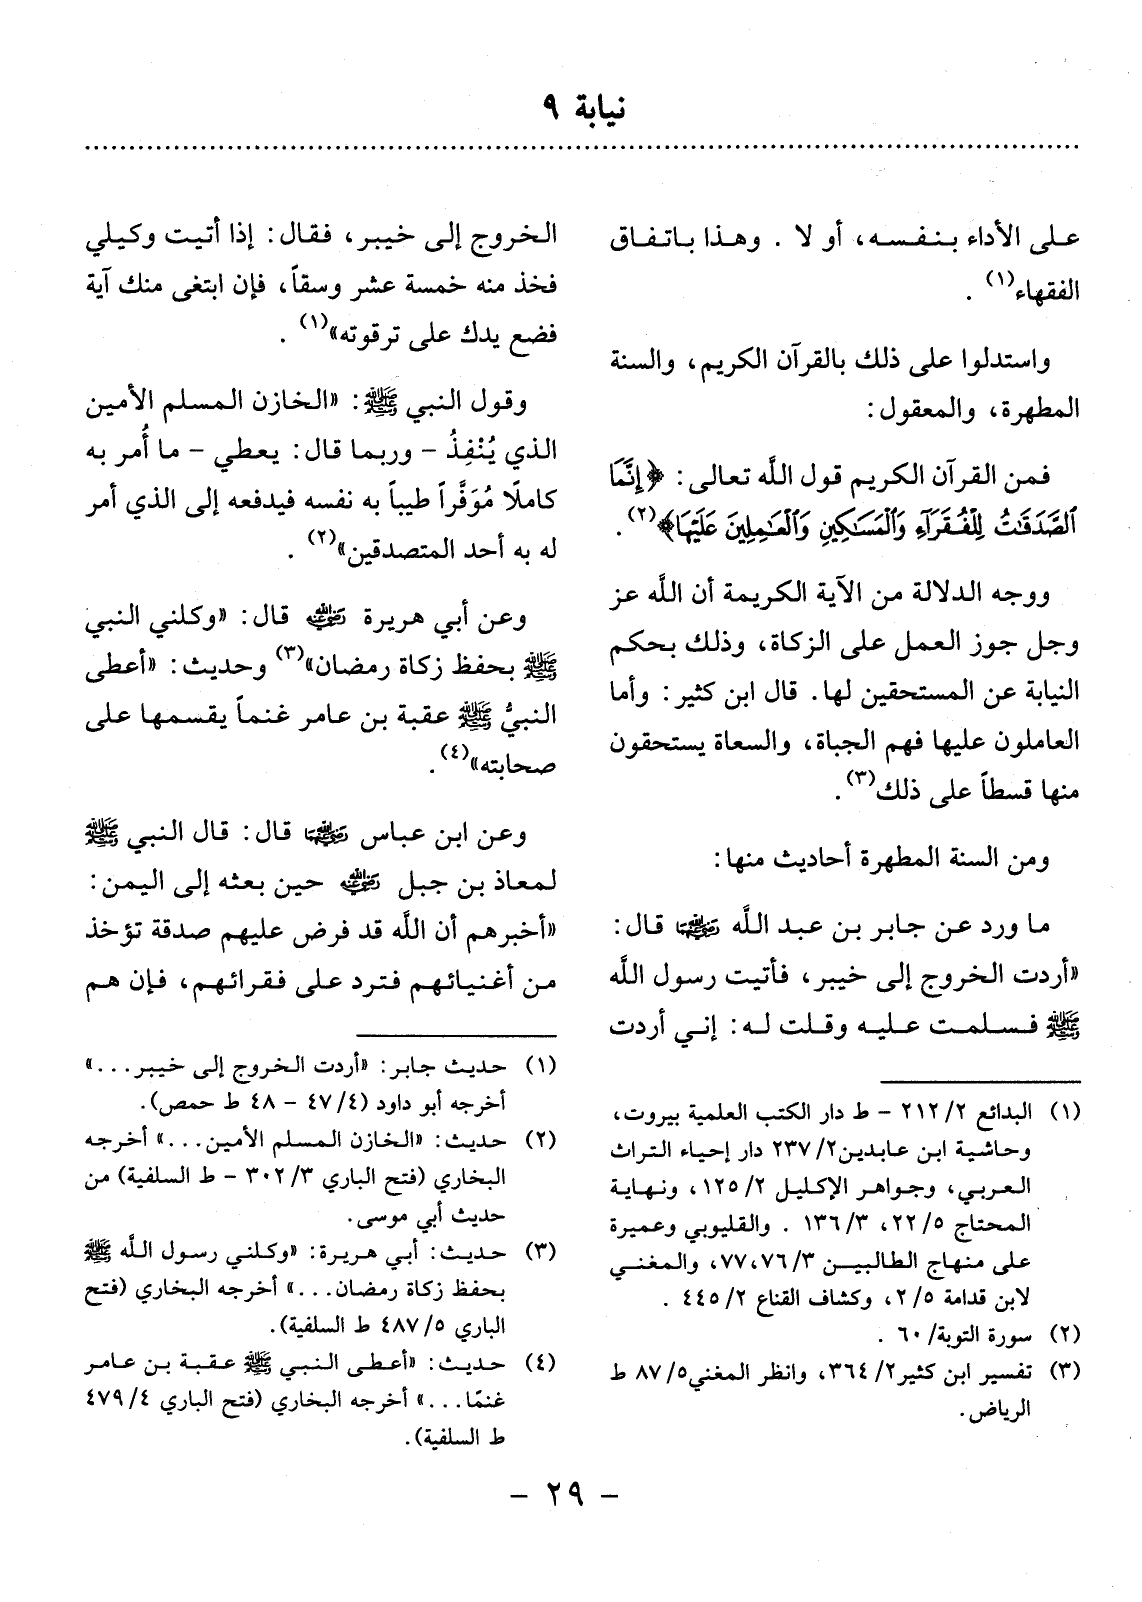 نيابة ٩
على الأداء بنفسه، أو لا . وهذا باتفاق
الفقهاء(١) .
واستدلوا على ذلك بالقرآن الكريم، والسنة
المطهرة، والمعقول:
فمن القرآن الكريم قول اللَّه تعالى: ﴿إِنَّمَا
ٱلصَّدَقَٰتُ لِلْفُقَرَآءِ وَٱلْمَسَٰكِينِ وَٱلْعَٰمِلِينَ عَلَيْهَا﴾(٢) .
ووجه الدلالة من الآية الكريمة أن اللَّه عز
وجل جوز العمل على الزكاة، وذلك بحكم
النيابة عن المستحقين لها. قال ابن كثير: وأما
العاملون عليها فهم الجباة، والسعاة يستحقون
منها قسطاً على ذلك(٣) .
ومن السنة المطهرة أحاديث منها:
ما ورد عن جابر بن عبد اللَّه رضي الله عنهما قال:
«أردت الخروج إلى خيبر، فأتيت رسول اللَّه
ﷺ فسلمت عليه وقلت له: إني أردت
(١) البدائع ٢/ ٢١٢ - ط دار الكتب العلمية بيروت،
وحاشية ابن عابدين٢/ ٢٣٧ دار إحياء التراث
العربي، وجواهر الإكليل ٢/ ١٢٥، ونهاية
المحتاج ٥/ ٢٢، ٣/ ١٣٦ . والقليوبي وعميرة
على منهاج الطالبين ٣/ ٧٧،٧٦، والمغني
لابن قدامة ٥/ ٢، وكشاف القناع ٢/ ٤٤٥ .
(٢) سورة التوبة/ ٦٠ .
(٣) تفسير ابن كثير٢/ ٣٦٤، وانظر المغني٥/ ٨٧ ط
الرياض.
الخروج إلى خيبر، فقال: إذا أتيت وكيلي
فخذ منه خمسة عشر وسقاً، فإن ابتغى منك آية
فضع يدك على ترقوته»(١) .
وقول النبي ﷺ: «الخازن المسلم الأمين
الذي يُنْفِذُ - وربما قال: يعطي - ما أُمر به
كاملًا مُوَفَّراً طيباً به نفسه فيدفعه إلى الذي أمر
له به أحد المتصدقين»(٢) .
وعن أبي هريرة رضي الله عنه قال: «وكلني النبي
ﷺ بحفظ زكاة رمضان»(٣) وحديث: «أعطى
النبيُّ ﷺ عقبة بن عامر غنماً يقسمها على
صحابته»(٤) .
وعن ابن عباس رضي الله عنهما قال: قال النبي ﷺ
لمعاذ بن جبل رضي الله عنه حين بعثه إلى اليمن:
«أخبرهم أن اللَّه قد فرض عليهم صدقة تؤخذ
من أغنيائهم فترد على فقرائهم، فإن هم
(١) حديث جابر: «أردت الخروج إلى خيبر...»
أخرجه أبو داود (٤/ ٤٧ - ٤٨ ط حمص).
(٢) حديث: «الخازن المسلم الأمين...» أخرجه
البخاري (فتح الباري ٣/ ٣٠٢ - ط السلفية) من
حديث أبي موسى.
(٣) حديث: أبي هريرة: «وكلني رسول اللَّه ﷺ
بحفظ زكاة رمضان...» أخرجه البخاري (فتح
الباري ٥/ ٤٨٧ ط السلفية).
(٤) حديث: «أعطى النبي ﷺ عقبة بن عامر
غنمًا...» أخرجه البخاري (فتح الباري ٤/ ٤٧٩
ط السلفية).
- ٢٩ -